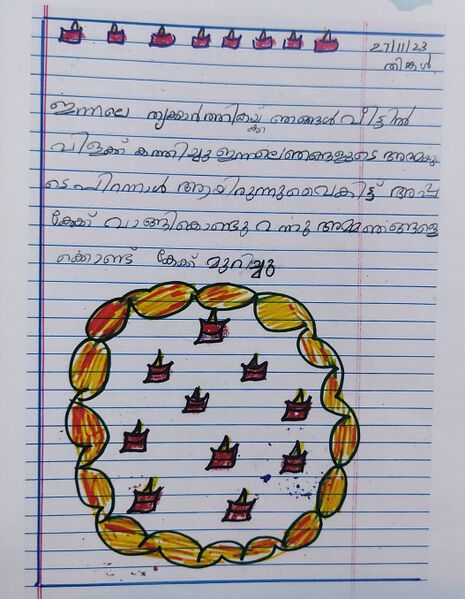 27/11/23
തിങ്കൾ
ഇന്നലെ തൃക്കാർത്തികയ്ക്ക് ഞങ്ങൾ വീട്ടിൽ
വിളക്ക് കത്തിച്ചു ഇന്നലെ ഞങ്ങളുടെ അമ്മയു
ടെ പിറന്നാൾ ആയിരുന്നു വൈകിട്ട് അപ്പ
കേക്ക് വാങ്ങികൊണ്ടു വന്നു അമ്മ ഞങ്ങളെ
ക്കൊണ്ട് കേക്ക് മുറിച്ചു